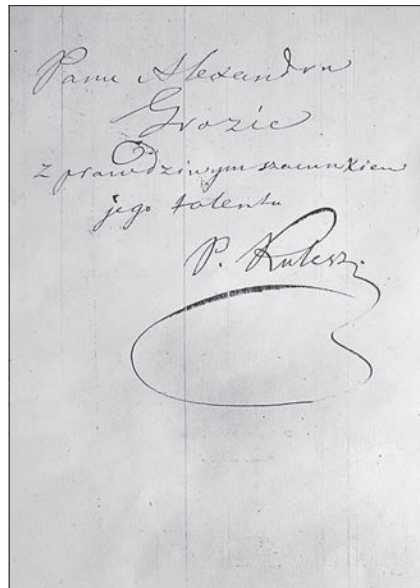 Panu Alexandru
Grozie
z prawdziwym szacunkiem
jego talentu
P. Kulesz.